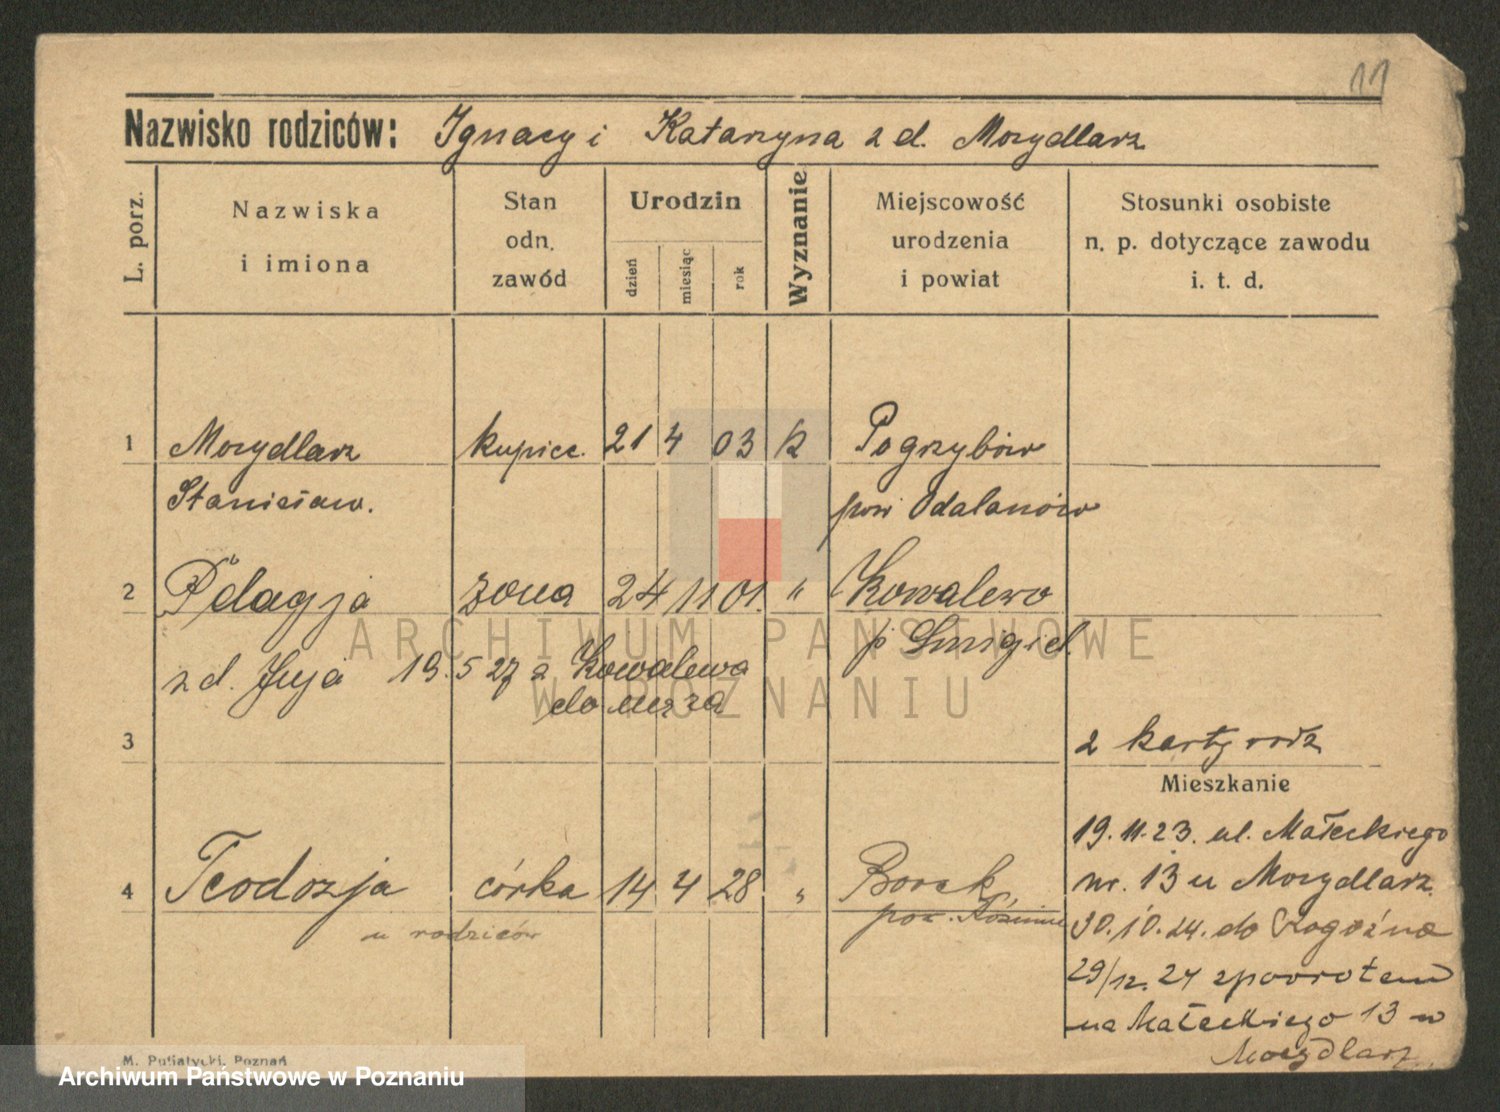 11
Nazwisko rodziców: Ignacy i Katarzyna z d. Mozydlarz
L. porz.
Nazwiska i imiona
Stan odn. zawód
Urodzin
dzień
miesiąc
rok
Wyznanie
Miejscowość urodzenia i powiat
Stosunki osobiste n. p. dotyczące zawodu i. t. d.
1 Mozydlarz kupiec. 21 4 03 k Pogrzybów
Stanisław. pow Odalanów
2 Pelagja żona 24 11 01 " Kowalewo
z d. Juja 19.5 27 z Kowalewa p Smigiel
do męża
3 2 karty rodz
Mieszkanie
19.11.23. ul. Małeckiego
4 Teodozja córka 14 4 28 " Borek nr. 13 u Mozydlarz
u rodziców pow. 30.10.24. do Rogoźna
29/12. 24 zpowrotem
na Małeckiego 13 u
Mozydlarz
M. Putiatycki, Poznań
ARCHIWUM PAŃSTWOWE
W POZNANIU
Archiwum Państwowe w Poznaniu